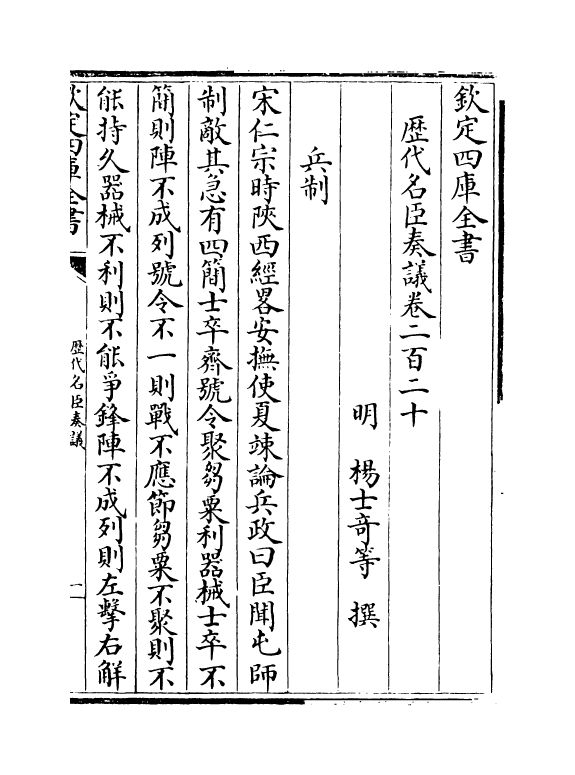 欽定四庫全書
歴代名臣奏議卷二百二十
明　楊士竒等　撰
兵制
宋仁宗時陜西經畧安撫使夏竦論兵政曰臣聞屯師
制敵其急有四簡士卒齊號令聚芻粟利器械士卒不
簡則陣不成列號令不一則戰不應節芻粟不聚則不
能持久器械不利則不能爭鋒陣不成列則左擊右解
欽定四庫全書
歴代名臣奏議
一